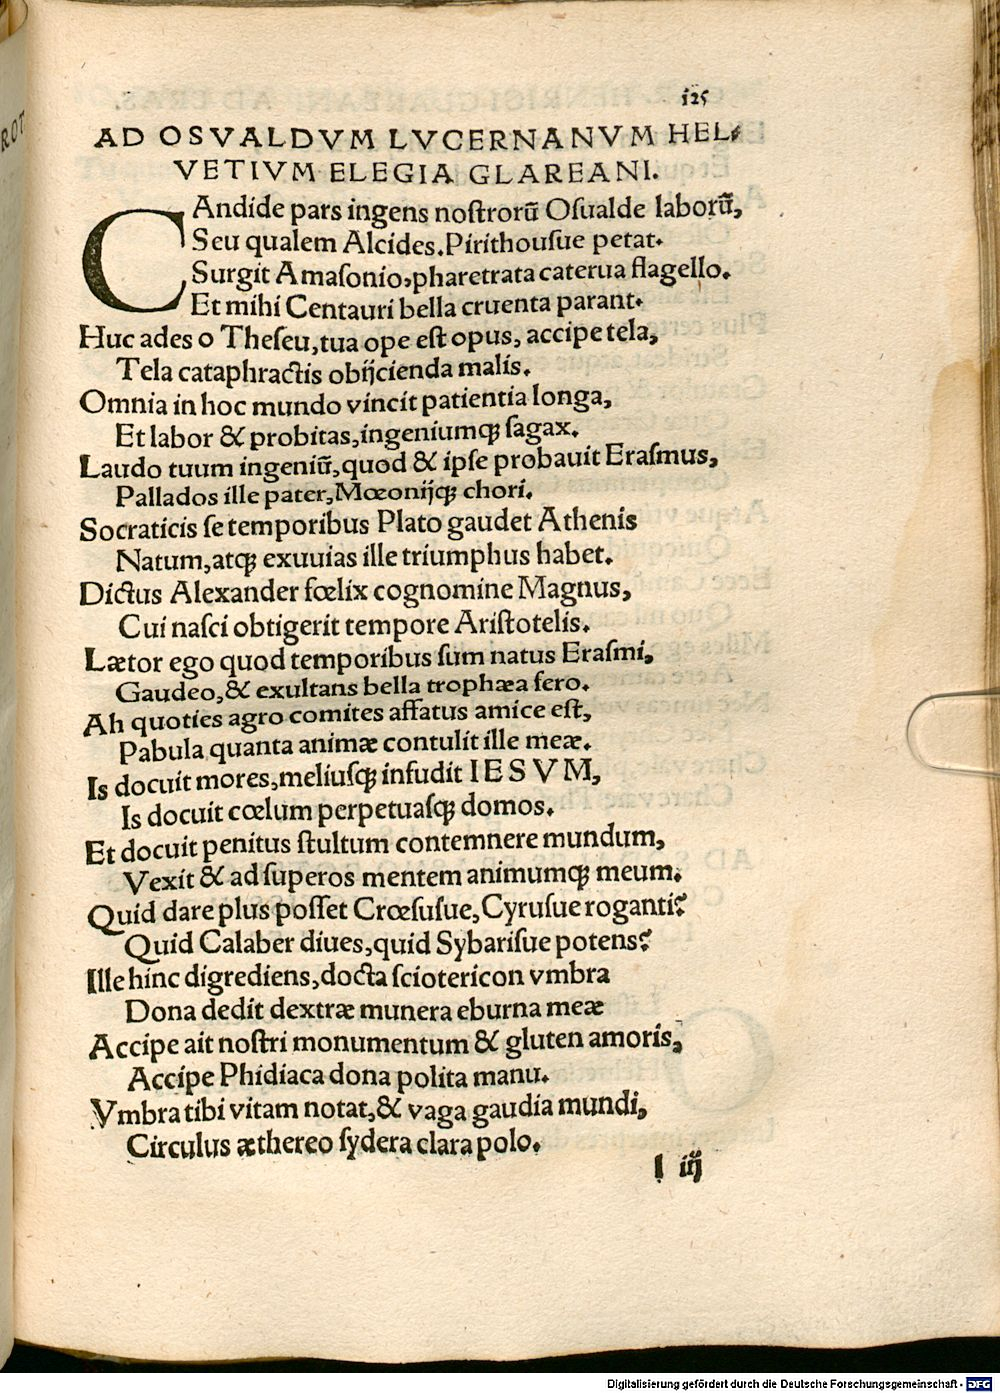 125
AD OSVALDVM LVCERNANVM HEL-
VETIVM ELEGIA GLAREANI.
CAndide pars ingens nostrorũ Osualde laborũ,
Seu qualem Alcides.Pirithousue petat.
Surgit Amasonio,pharetrata caterua flagello.
Et mihi Centauri bella cruenta parant.
Huc ades o Theseu,tua ope est opus, accipe tela,
Tela cataphractis obijcienda malis.
Omnia in hoc mundo vincit patientia longa,
Et labor & probitas,ingeniumqꝫ sagax.
Laudo tuum ingeniũ,quod & ipse probauit Erasmus,
Pallados ille pater,Mœonijqꝫ chori.
Socraticis se temporibus Plato gaudet Athenis
Natum,atqꝫ exuuias ille triumphus habet.
Dictus Alexander fœlix cognomine Magnus,
Cui nasci obtigerit tempore Aristotelis.
Lætor ego quod temporibus sum natus Erasmi,
Gaudeo,& exultans bella trophæa fero.
Ah quoties agro comites affatus amice est,
Pabula quanta animæ contulit ille meæ.
Is docuit mores,meliusqꝫ infudit IESVM,
Is docuit cœlum perpetuasqꝫ domos.
Et docuit penitus stultum contemnere mundum,
Vexit & ad superos mentem animumqꝫ meum.
Quid dare plus posset Crœsusue,Cyrusue roganti?
Quid Calaber diues,quid Sybarisue potens?
Ille hinc digrediens,docta sciotericon vmbra
Dona dedit dextræ munera eburna meæ
Accipe ait nostri monumentum & gluten amoris,
Accipe Phidiaca dona polita manu.
Vmbra tibi vitam notat,& vaga gaudia mundi,
Circulus æthereo sydera clara polo.
l iij
Digitalisierung gefördert durch die Deutsche Forschungsgemeinschaft - DFG